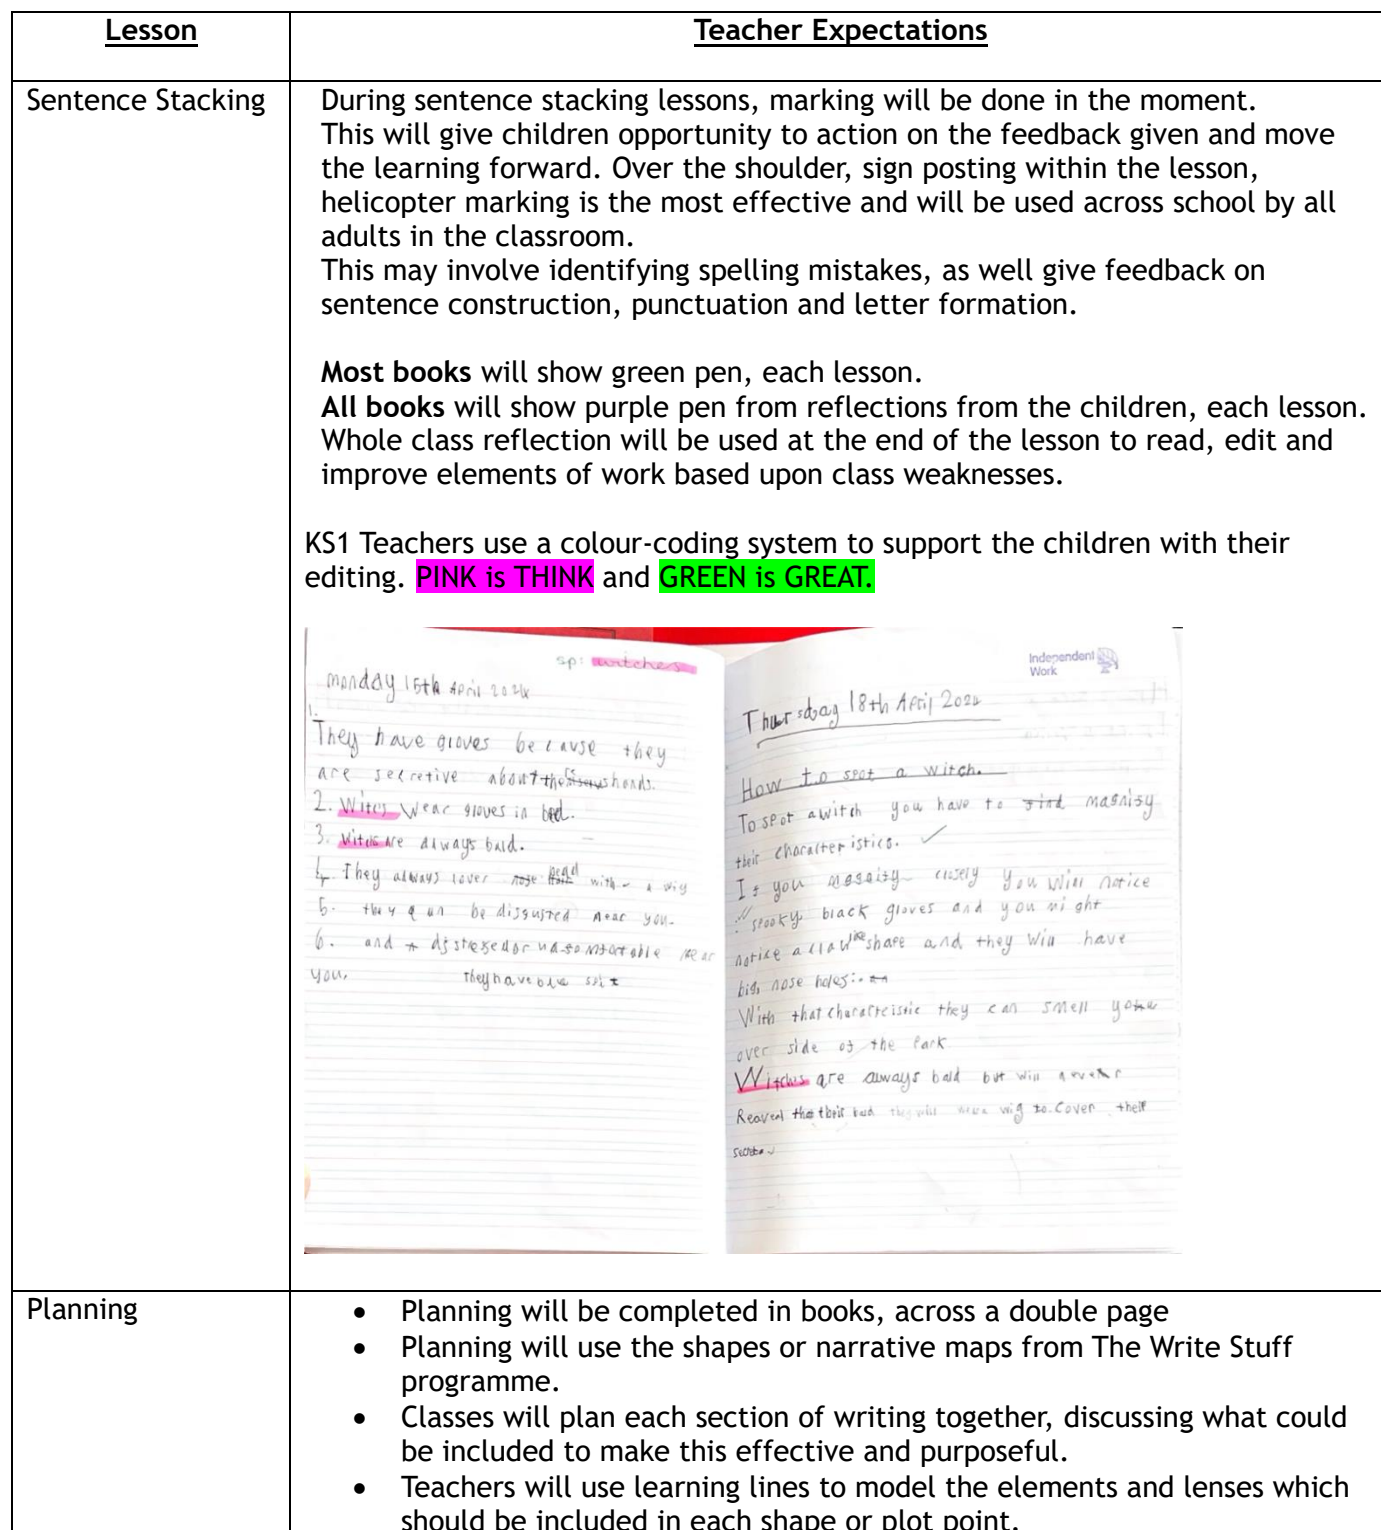 Lesson
Teacher Expectations
Sentence Stacking
During sentence stacking lessons, marking will be done in the moment.
This will give children opportunity to action on the feedback given and move
the learning forward. Over the shoulder, sign posting within the lesson,
helicopter marking is the most effective and will be used across school by all
adults in the classroom.
This may involve identifying spelling mistakes, as well give feedback on
sentence construction, punctuation and letter formation.
Most books will show green pen, each lesson.
All books will show purple pen from reflections from the children, each lesson.
Whole class reflection will be used at the end of the lesson to read, edit and
improve elements of work based upon class weaknesses.
KS1 Teachers use a colour-coding system to support the children with their
editing. PINK is THINK and GREEN is GREAT.
sp: witches
monday 15th April 2024
1.
They have gloves because they
are secretive about hands.
2. Wear gloves in bed.
3. are always bald.
4. They always cover with a wig
5. they be disgusted near you.
6. and or near
you. They have blue
Independent
Work
Thursday 18th April 2024
How to spot a witch.
To spot a witch you have to find
their characteristics.
you closely you will notice
spooky black gloves and you
notice a claw like shape and they will have
big nose holes.
With that they can smell
over side of the Park
Witchis are always bald but will
Reaveal their they will wig to cover their
Planning
• Planning will be completed in books, across a double page
• Planning will use the shapes or narrative maps from The Write Stuff
programme.
• Classes will plan each section of writing together, discussing what could
be included to make this effective and purposeful.
• Teachers will use learning lines to model the elements and lenses which
should be included in each shape or plot point.